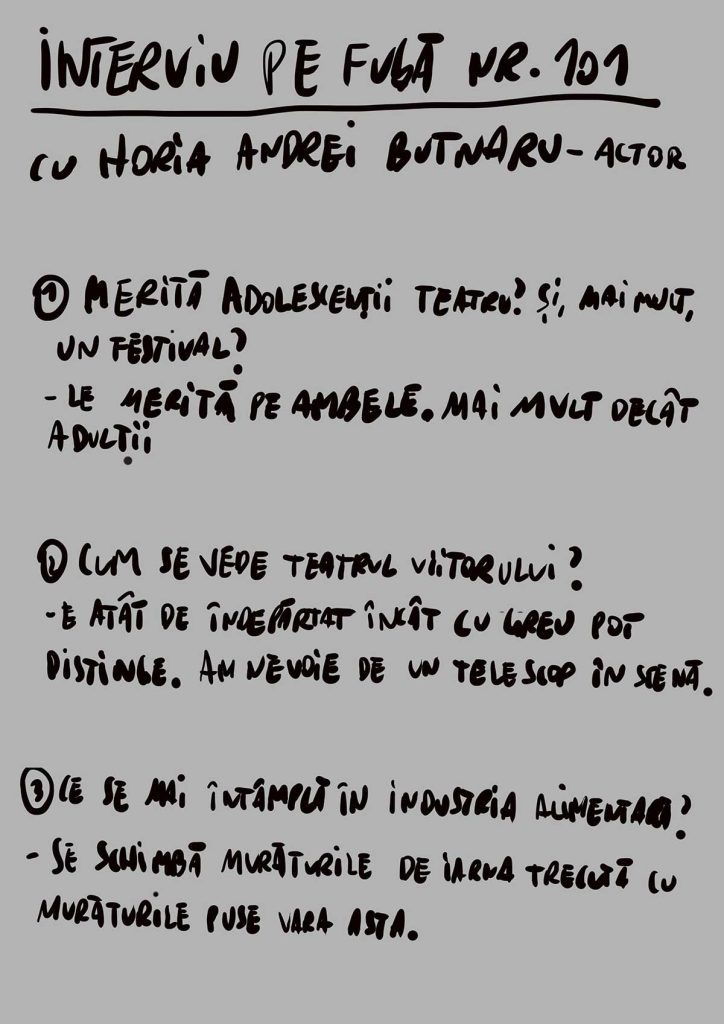 INTERVIU PE FUGĂ NR. 101
CU HORIA ANDREI BUTNARU - ACTOR
1 MERITĂ ADOLESCENȚII TEATRU? ȘI, MAI MULT,
UN FESTIVAL?
- LE MERITĂ PE AMBELE. MAI MULT DECÂT
ADULȚII
2 CUM SE VEDE TEATRUL VIITORULUI?
- E ATÂT DE ÎNDEPĂRTAT ÎNCÂT CU GREU POT
DISTINGE. AM NEVOIE DE UN TELESCOP ÎN SCENĂ.
3 CE SE MAI ÎNTÂMPLĂ ÎN INDUSTRIA ALIMENTARĂ?
- SE SCHIMBĂ MURĂTURILE DE IARNA TRECUTĂ CU
MURĂTURILE PUSE VARA ASTA.